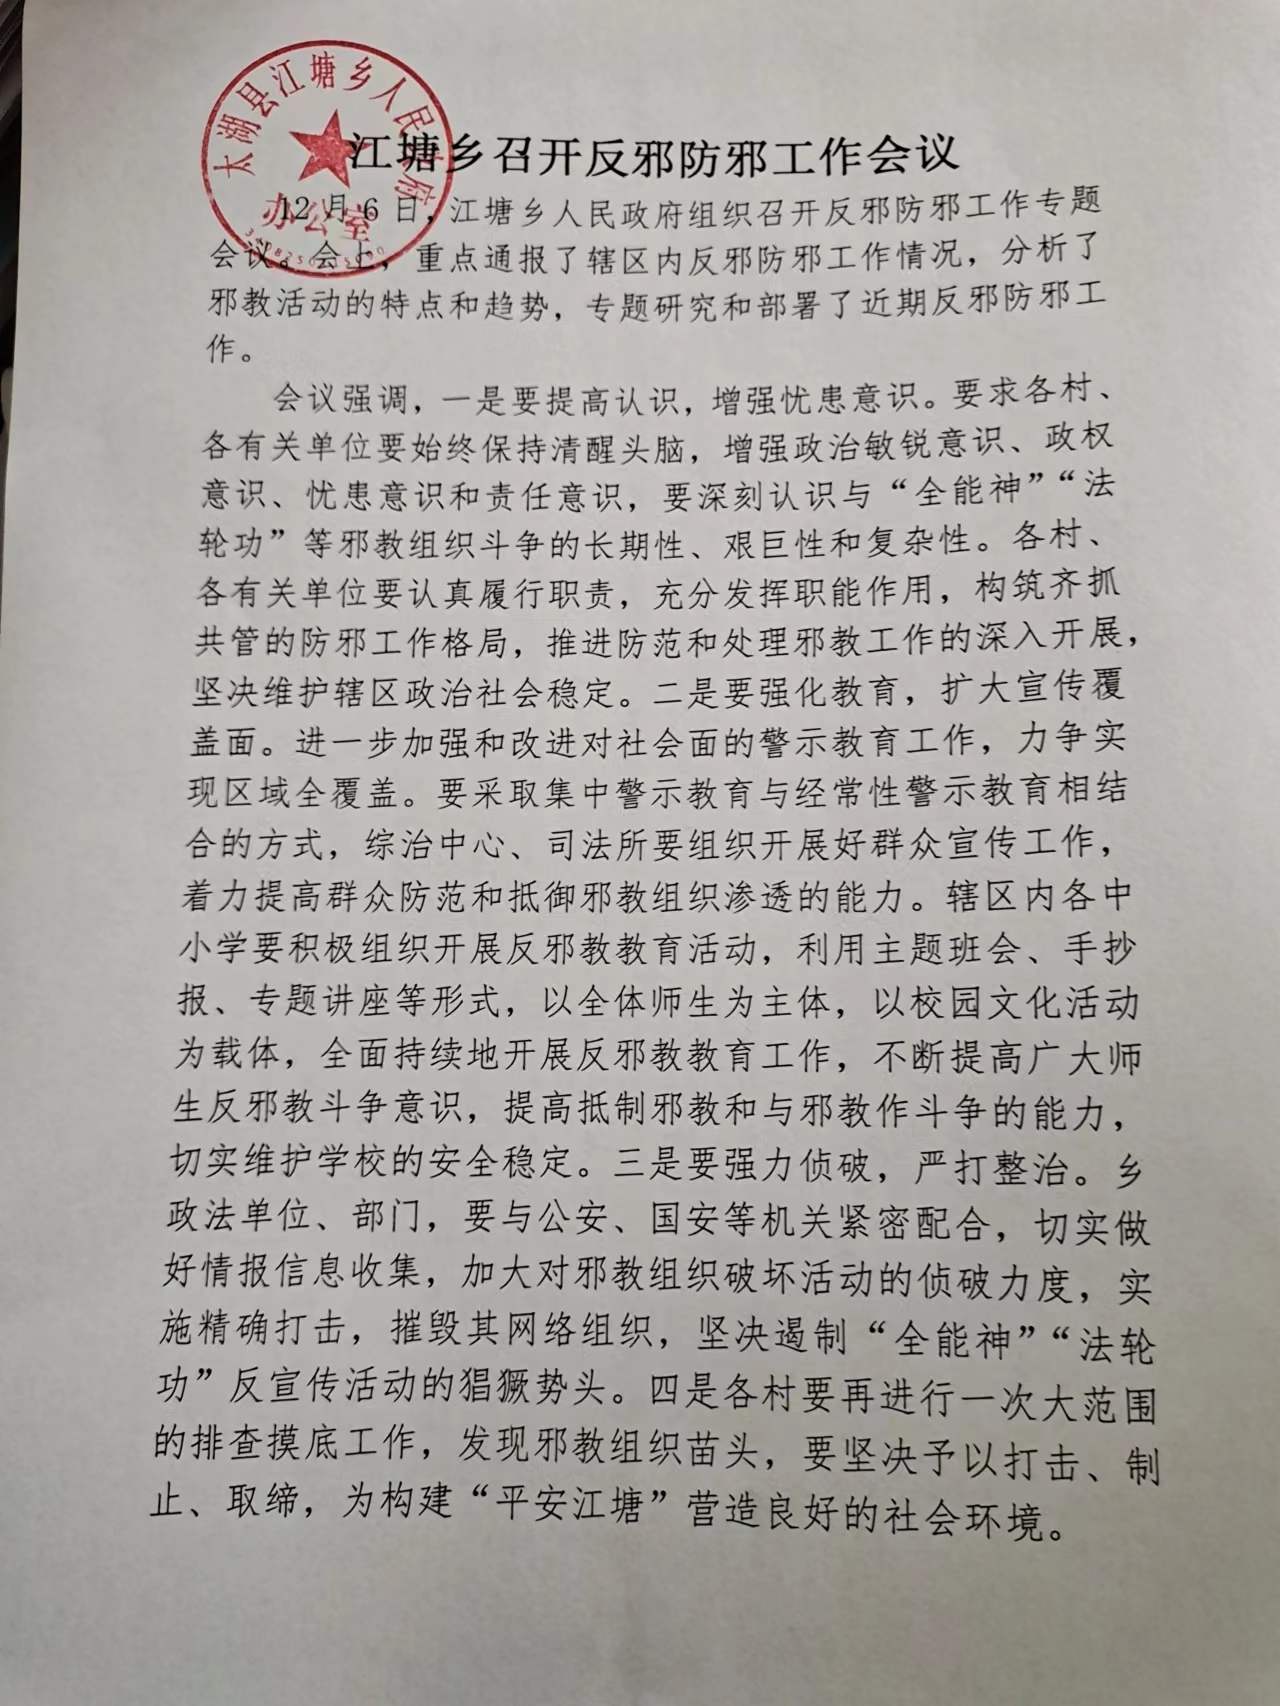 太湖县江塘乡人民政府
办公室
江塘乡召开反邪防邪工作会议
12月6日，江塘乡人民政府组织召开反邪防邪工作专题
会议。会上，重点通报了辖区内反邪防邪工作情况，分析了
邪教活动的特点和趋势，专题研究和部署了近期反邪防邪工
作。
会议强调，一是要提高认识，增强忧患意识。要求各村、
各有关单位要始终保持清醒头脑，增强政治敏锐意识、政权
意识、忧患意识和责任意识，要深刻认识与“全能神”“法
轮功”等邪教组织斗争的长期性、艰巨性和复杂性。各村、
各有关单位要认真履行职责，充分发挥职能作用，构筑齐抓
共管的防邪工作格局，推进防范和处理邪教工作的深入开展，
坚决维护辖区政治社会稳定。二是要强化教育，扩大宣传覆
盖面。进一步加强和改进对社会面的警示教育工作，力争实
现区域全覆盖。要采取集中警示教育与经常性警示教育相结
合的方式，综治中心、司法所要组织开展好群众宣传工作，
着力提高群众防范和抵御邪教组织渗透的能力。辖区内各中
小学要积极组织开展反邪教教育活动，利用主题班会、手抄
报、专题讲座等形式，以全体师生为主体，以校园文化活动
为载体，全面持续地开展反邪教教育工作，不断提高广大师
生反邪教斗争意识，提高抵制邪教和与邪教作斗争的能力，
切实维护学校的安全稳定。三是要强力侦破，严打整治。乡
政法单位、部门，要与公安、国安等机关紧密配合，切实做
好情报信息收集，加大对邪教组织破坏活动的侦破力度，实
施精确打击，摧毁其网络组织，坚决遏制“全能神”“法轮
功”反宣传活动的猖獗势头。四是各村要再进行一次大范围
的排查摸底工作，发现邪教组织苗头，要坚决予以打击、制
止、取缔，为构建“平安江塘”营造良好的社会环境。